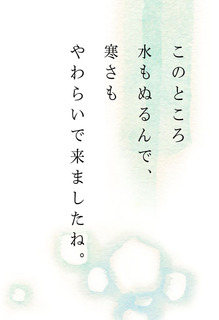 このところ
水もぬるんで、
寒さも
やわらいで来ましたね。